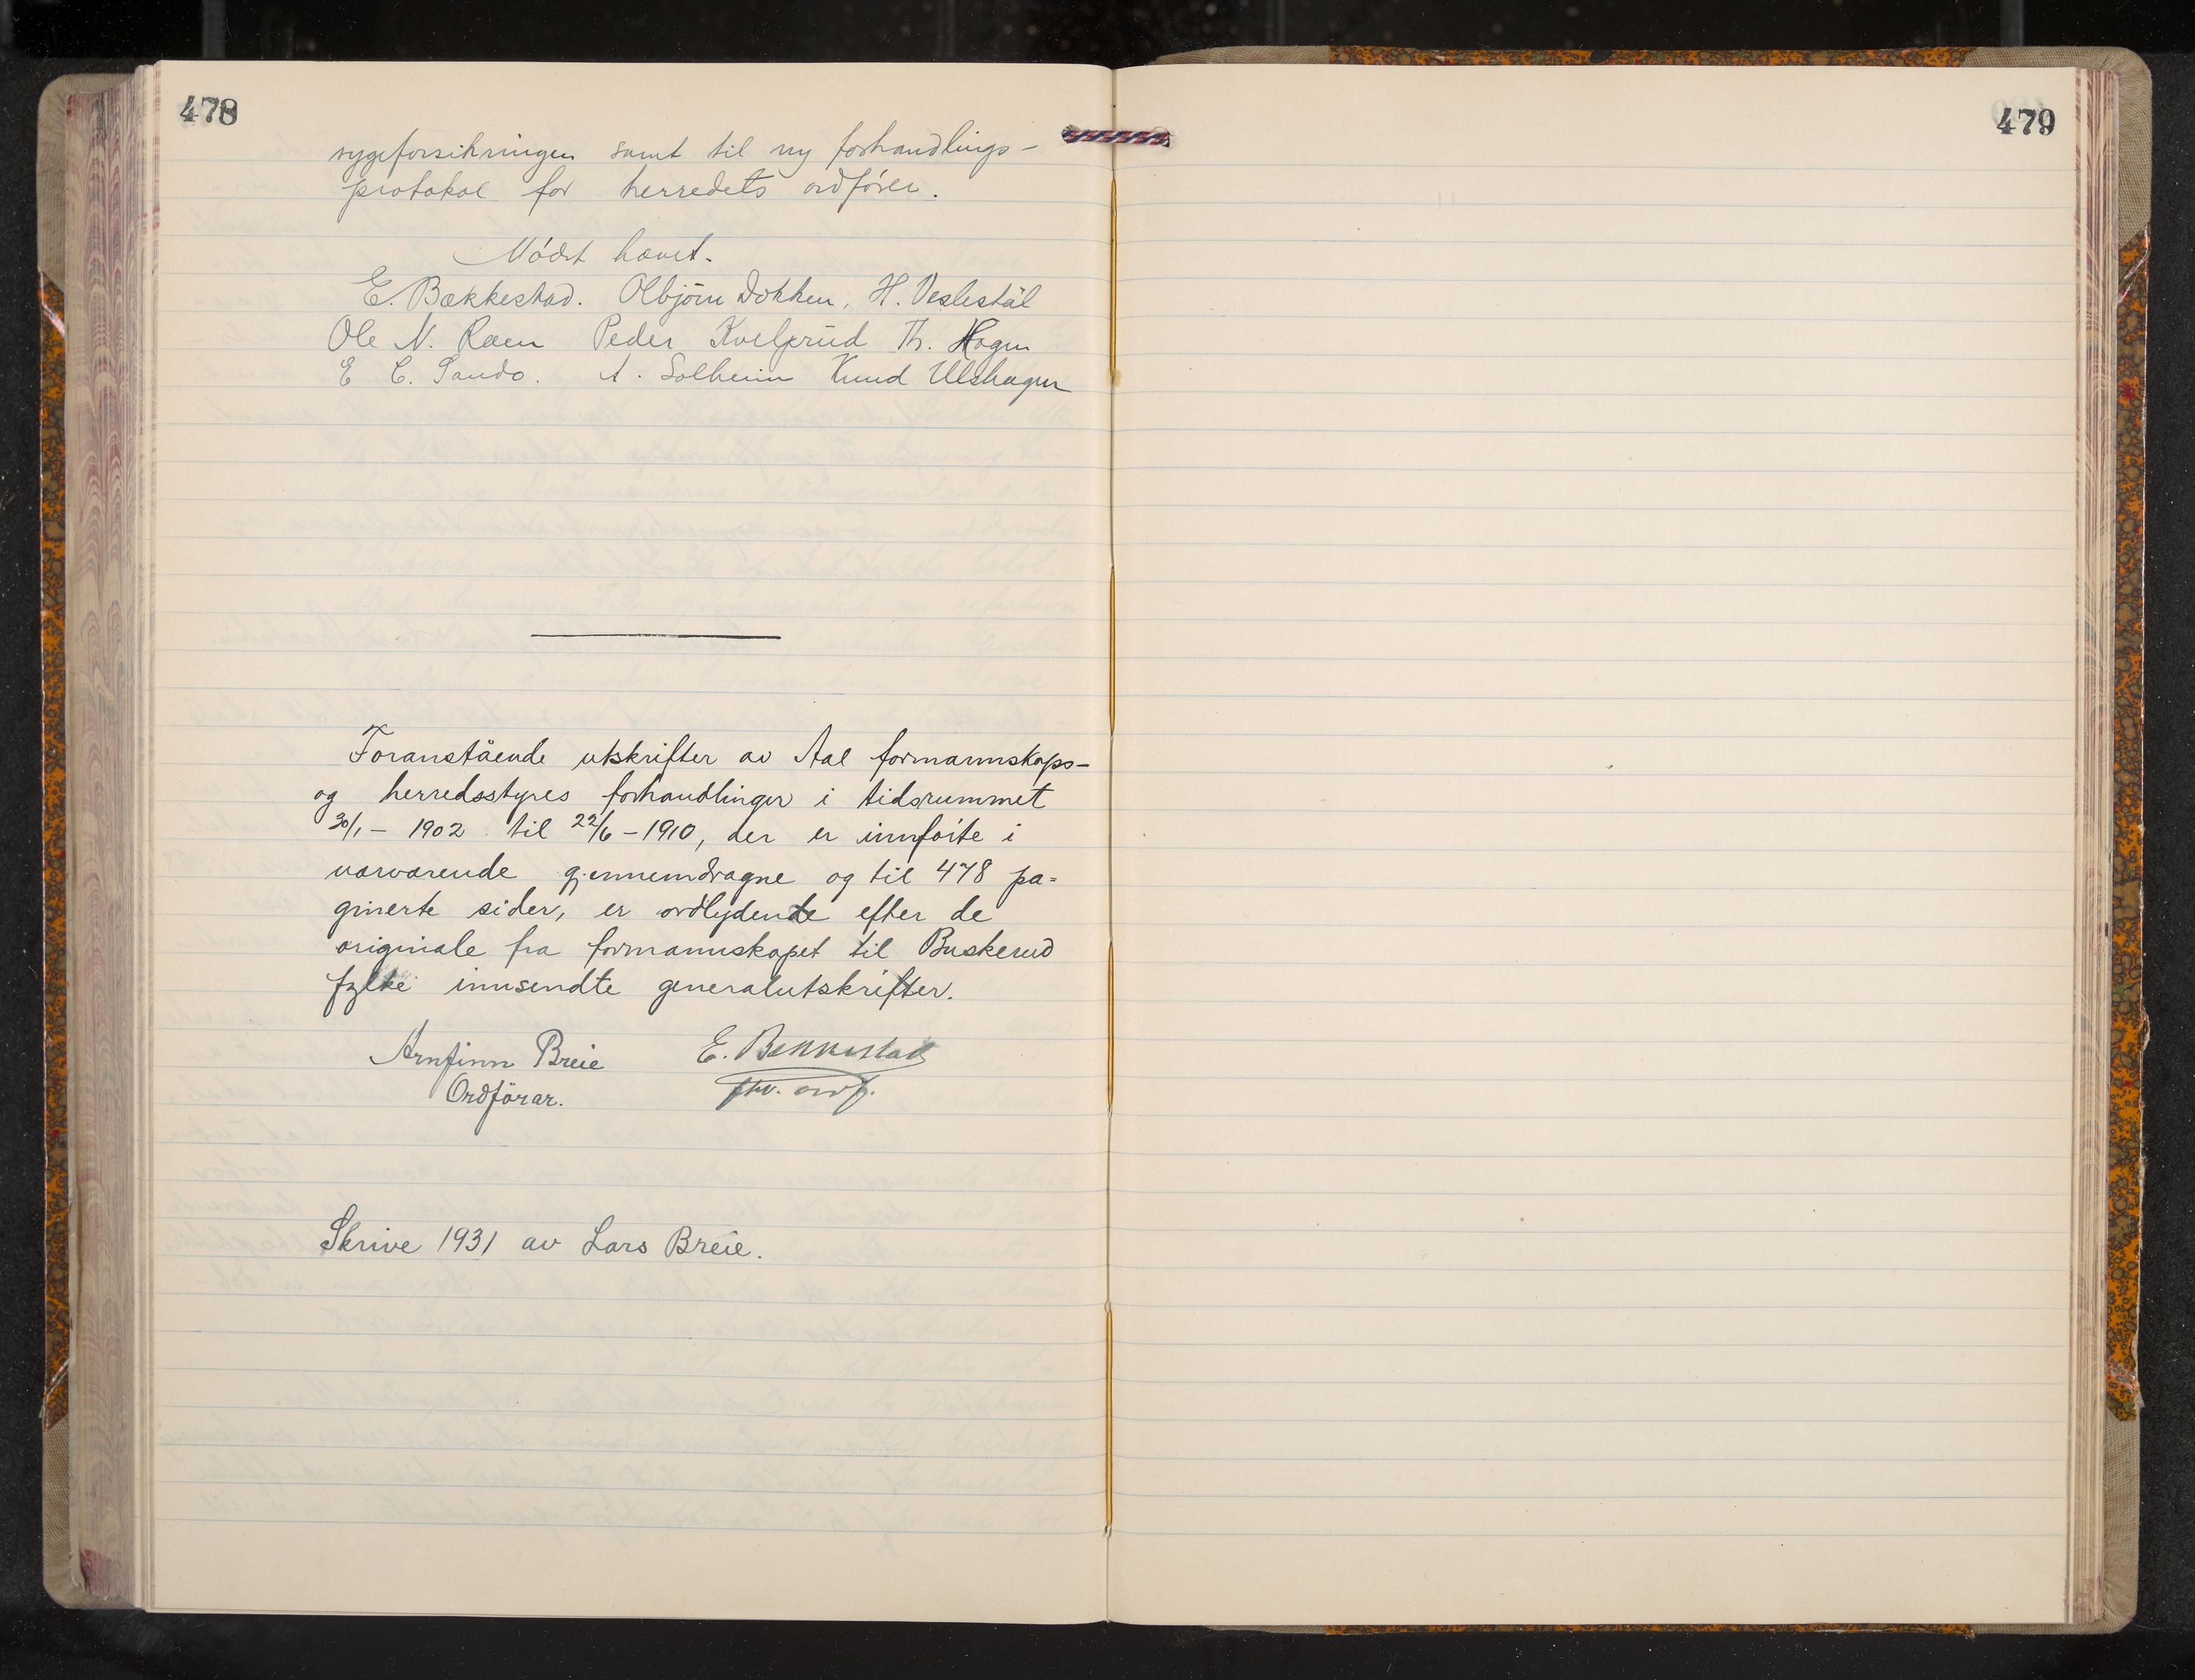 478
sygeforsikringen samt til ny forhandlings-
protokol for herredets ordfører.
Mødet hævet.
E. Bækkestad. Olbjørn Dokken, H. Veslestål
Ole N. Raen Peder Kvelprud Th. Hagen
E C. Sando. A. Solheim Knud Ulshagen
Foranstående utskrifter av Aal formannskaps-
og herredsstyres forhandlinger i tidsrummet
30/1 - 1902 til 22/6 - 1910, der er innførte i
nærværende gjennemdragne og til 478 pa=
ginerte sider, er ordlydende efter de
originale fra formannskapet til Buskerud
fylke innsendte generalutskrifter.
Arnfinn Breie E. Bekkestad
Ordförar. fhv. ordf.
Skrive 1931 av Lars Breie.
479